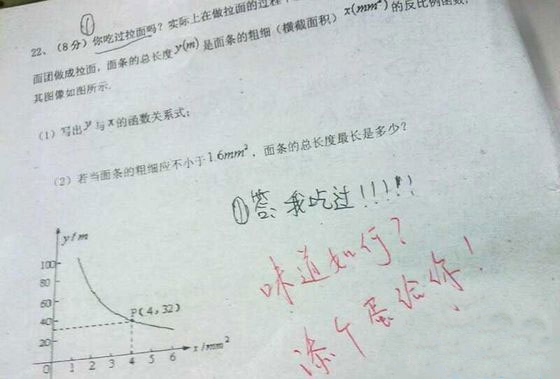 ①
22、(8分)你吃过拉面吗?实际上在做拉面的过程
面团做成拉面,面条的总长度y(m)是面条的粗细(横截面积)x(mm²)的反比例函数,
其图像如图所示.
(1)写出y与x的函数关系式;
(2)若当面条的粗细应不小于1.6mm²,面条的总长度最长是多少?
①答:我吃过!!!!!
味道如何?
添个蛋给你!
y/m
100
80
60
40
20
0
P(4,32)
1 2 3 4 5 6
x/mm²